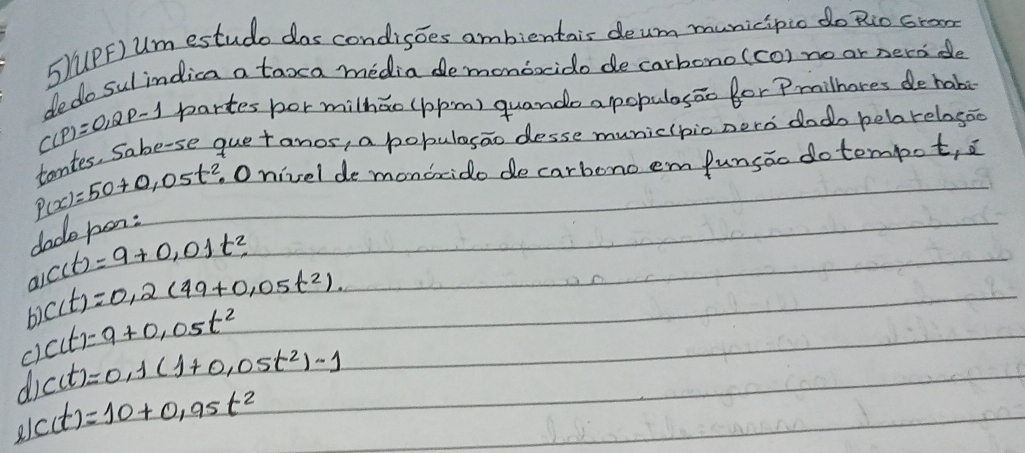 5)(UPF) Um estudo das condisões ambientais de um município do Rio Gran
de do sul indica a taxa média de monóxido de carbono (CO) no ar será de
C(P)=0,2P-1 partes por milhão (ppm) quando a populasão for P milhares de habi-
tantes. Sabe-se que t anos, a populasão desse município será dado pela relasão
P(x)=50+0,05t². O nível de monóxido de carbono em funsão do tempo t, é
dado por:
a)C(t)=9+0,01t².
b)C(t)=0,2(49+0,05t²).
c)C(t)=9+0,05t²
d)C(t)=0,1(1+0,05t²)-1
e)C(t)=10+0,95t²